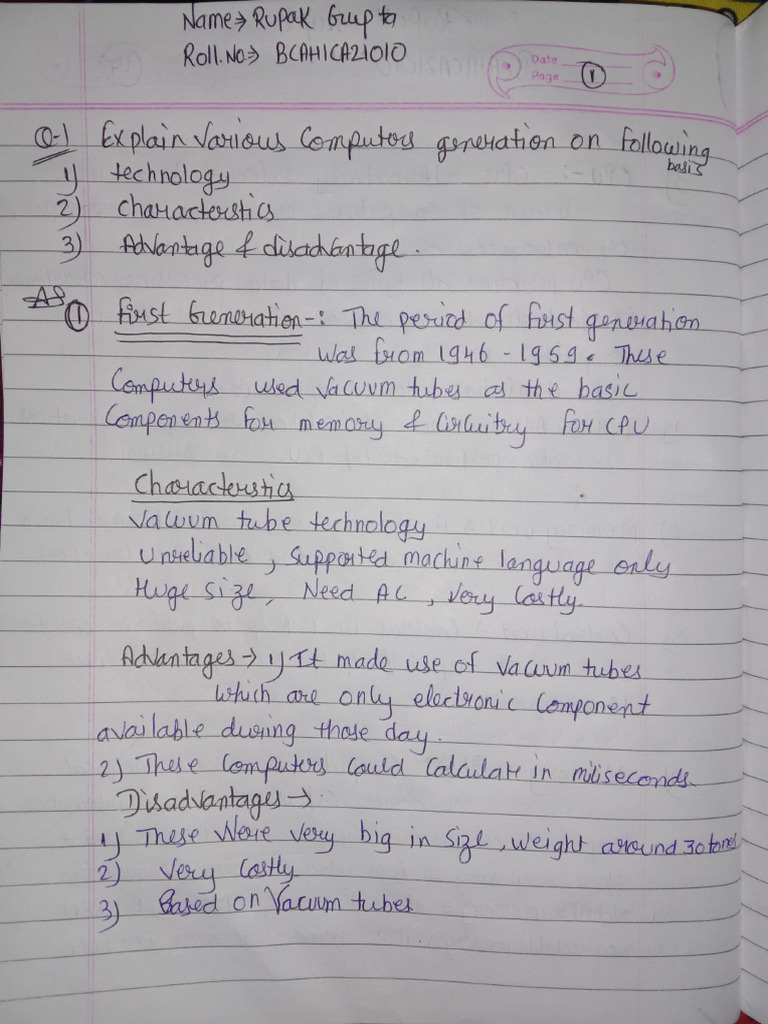 Name→ Rupak Gupta
Roll.No→ BCAH1CA21010
Date
Page 1
Q-1 Explain various Computers generation on following basis
1) technology
2) characterstics
3) Advantage & disadvantage.
AS
① First Generation-: The period of first generation
was from 1946 - 1959. These
Computers used vacuum tubes as the basic
Components for memory & Circuitry for CPU
Characterstics
Vacuum tube technology
Unreliable, supported machine language only
Huge size, Need AC, very Costly.
Advantages→ 1) It made use of vacuum tubes
which are only electronic Component
available during those day.
2) These Computers Could Calculate in miliseconds.
Disadvantages→
1) These were very big in size, weight around 30 tones
2) Very Costly
3) Based on Vacuum tubes